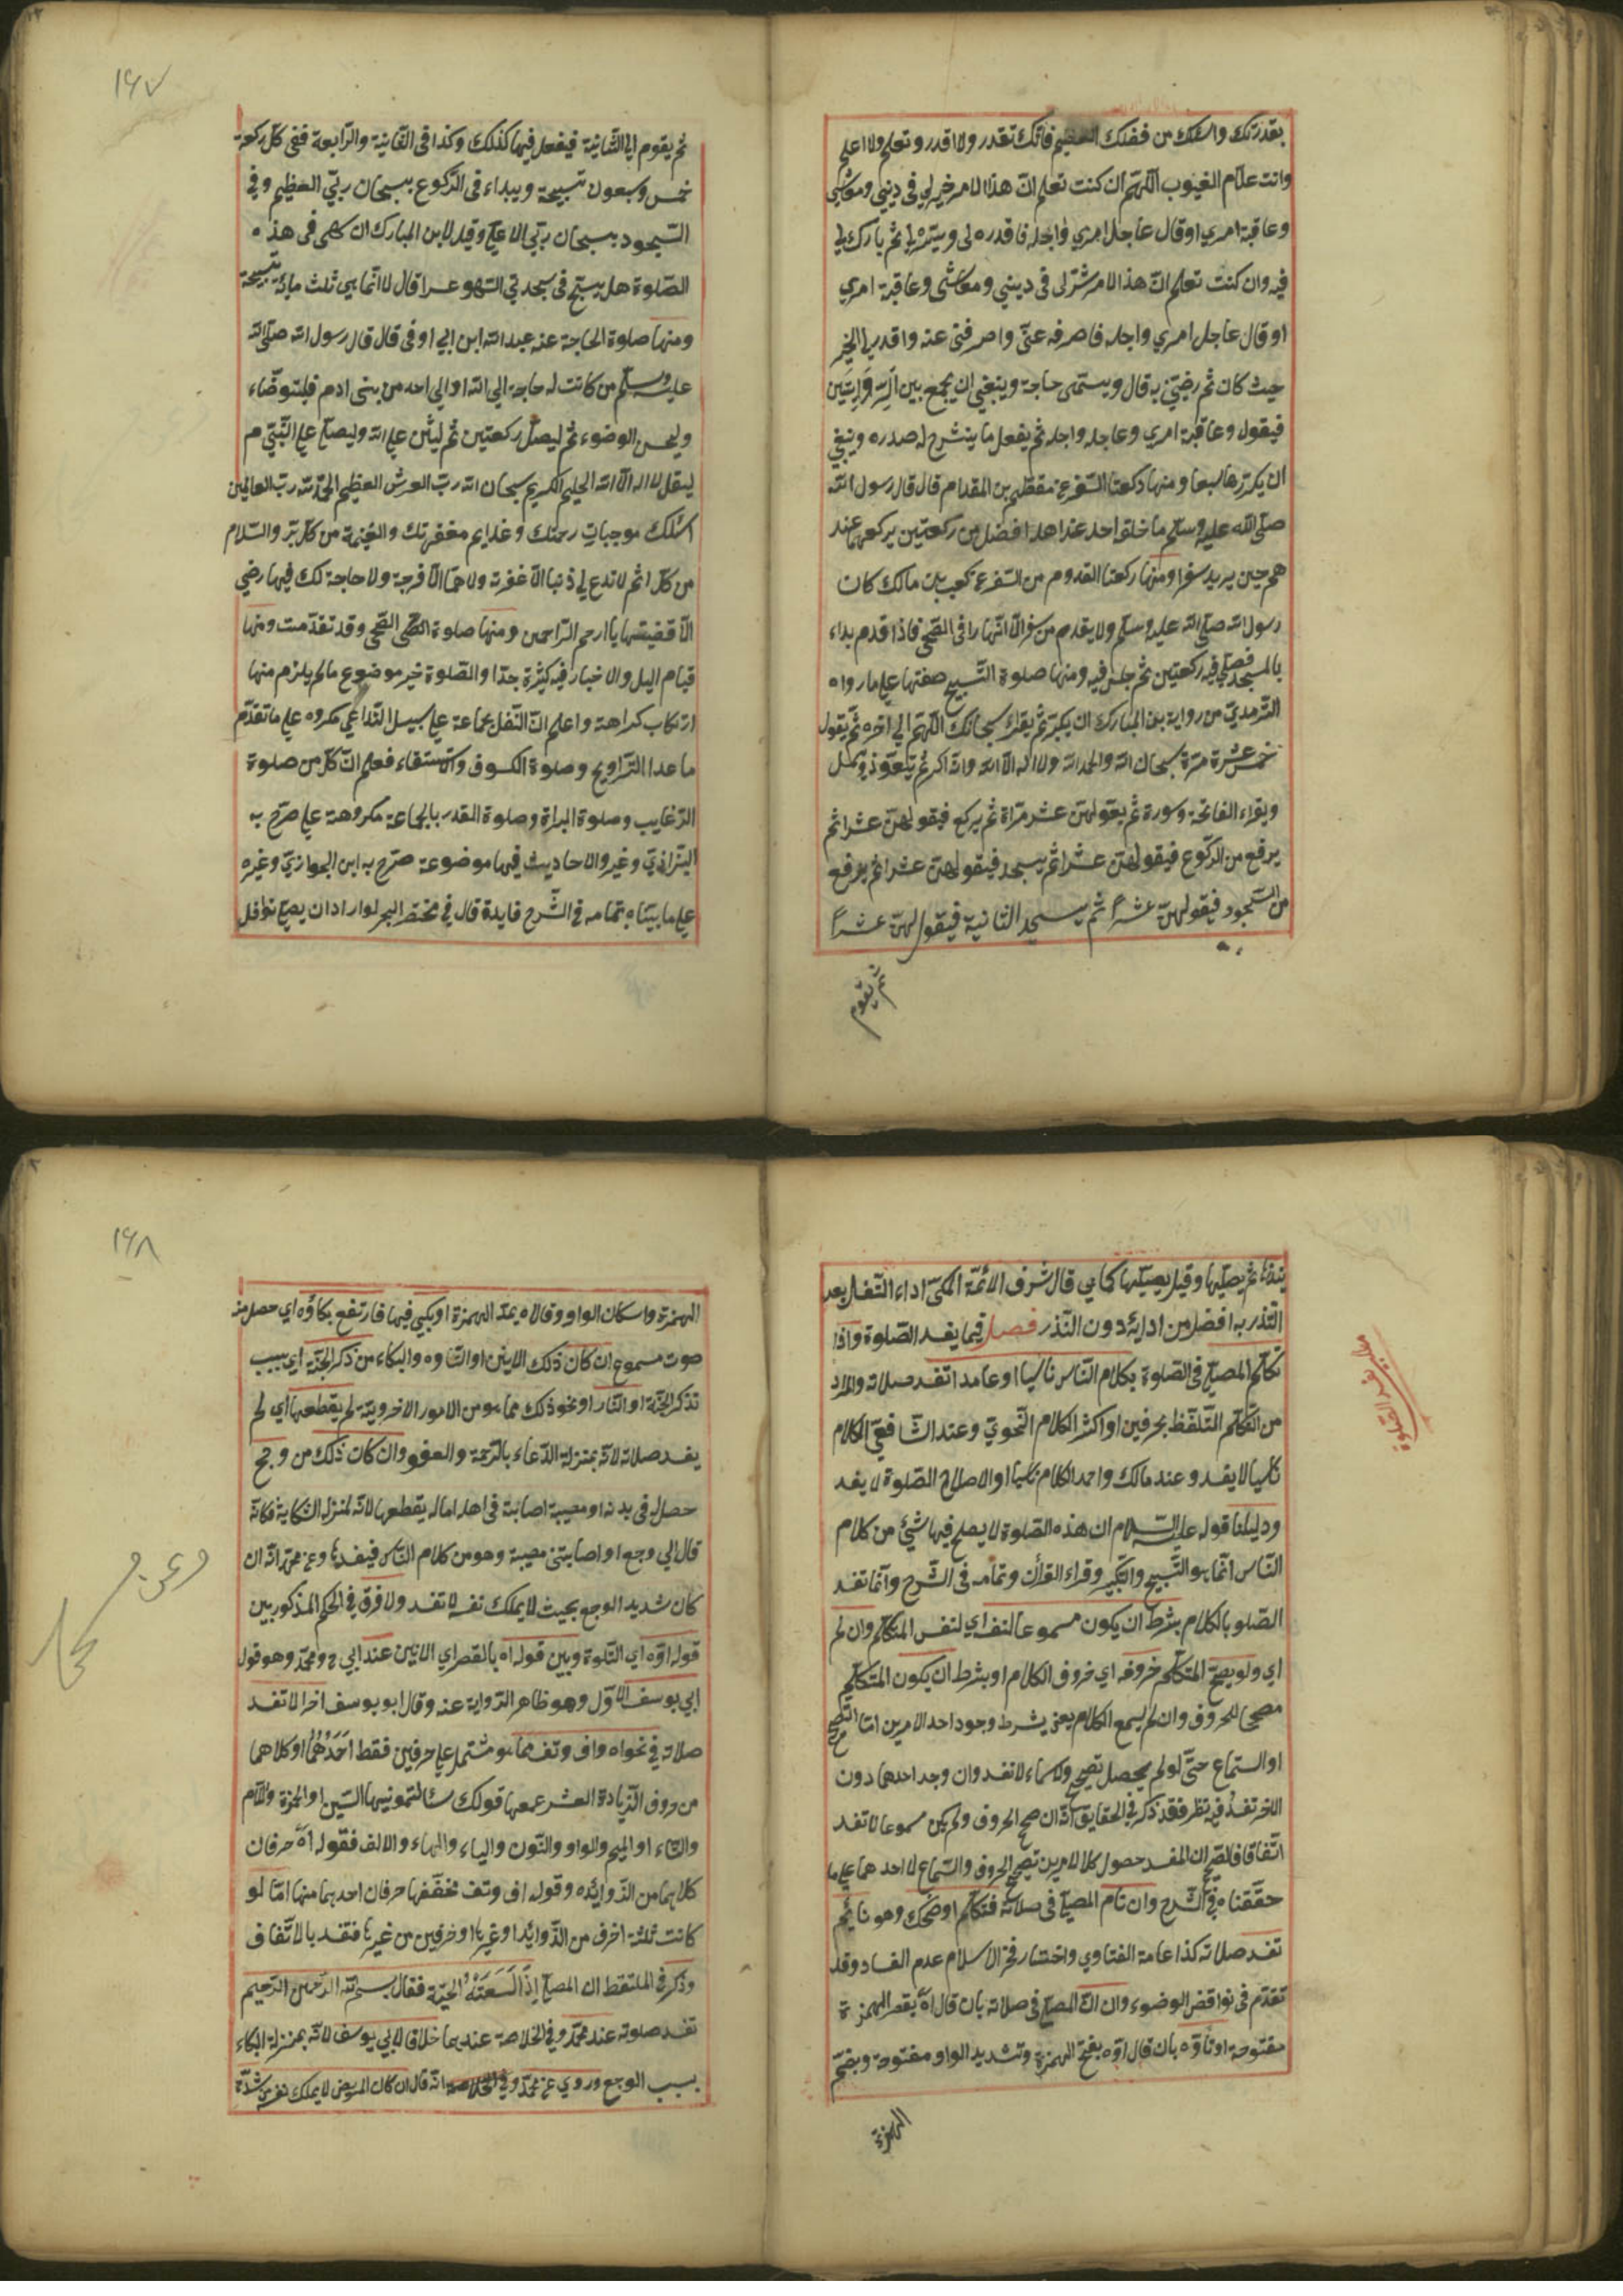 بقدرتك واسئلك من فضلك العظيم فانك تقدر ولا اقدر وتعلم ولا اعلم
وانت علام الغيوب اللهم ان كنت تعلم ان هذا الامر خير لي في ديني ومعاشي
وعاقبة امري او قال عاجل امري واجله فاقدره لي ويسره لي ثم بارك لي
فيه وان كنت تعلم ان هذا الامر شر لي في ديني ومعاشي وعاقبة امري
او قال عاجل امري واجله فاصرفه عني واصرفني عنه واقدر لي الخير
حيث كان ثم رضني به قال ويسمى حاجة وينبغي ان يجمع بين الروايتين
فيقول وعاقبة امري وعاجله واجله ثم يفعل ما ينشرح له صدره وينبغي
ان يكررها سبعا ومنها ركعتا السفر عن مقطم بن المقدام قال قال رسول الله
صلى الله عليه وسلم ما خلف احد عند اهله افضل من ركعتين يركعهما عند
هم حين يريد سفرا ومنها ركعتا القدوم من السفر عن كعب بن مالك كان
رسول الله صلى الله عليه وسلم ولا يقدم من سفر الا نهارا في الضحى فاذا قدم بداء
بالمسجد فصلى فيه ركعتين ثم جلس فيه ومنها صلوة التسبيح صفتها على ما رواه
الترمذي من رواية بن المبارك ان يكبر ثم يقراء سبحانك اللهم الى اخره ثم يقول
خمس عشرة مرة سبحان الله والحمد لله ولا اله الا الله والله اكبر ثم يتعوذ ويبسمل
ويقراء الفاتحة وسورة ثم يقولهن عشر مراة ثم يركع فيقولهن عشرا ثم
يرفع من الركوع فيقولهن عشرا ثم يسجد فيقولهن عشرا ثم يرفع
من السجود فيقولهن عشرا ثم يسجد الثانية فيقولهن عشرا
ثم يقوم
١٦٧
ثم يقوم الى الثانية فيفعل فيها كذلك وكذا في الثانية والرابعة ففي كل ركعة
خمس وسبعون تسبيحة ويبداء في الركوع بسبحان ربي العظيم وفي
السجود بسبحان ربي الاعلى وقيل لابن المبارك ان سهى في هذه
الصلوة هل يسبح في سجدتي السهو عشرا قال لا انما هي ثلث مائة تسبيحة
ومنها صلوة الحاجة عنه عبد الله ابن ابي اوفى قال قال رسول الله صلى الله
عليه وسلم من كانت له حاجة الى الله او الى احد من بنى ادم فليتوضاء
وليحسن الوضوء ثم ليصل ركعتين ثم ليثن على الله وليصل على النبي م
ليقل لا اله الا الله الحليم الكريم سبحان الله رب العرش العظيم الحمد لله رب العالمين
اسئلك موجبات رحمتك وعذايم مغفرتك والغنيمة من كل بر والسلام
من كل اثم لا تدع لي ذنبا الا غفرته ولا هما الا فرجة ولا حاجة لك فيها رضي
الا قضيتها يا ارحم الراحمين ومنها صلوة الضحى وقد تقدمت ومنها
قيام اليل والاخبار فيه كثيرة جدا والصلوة خير موضوع مالم يلزم منها
ارتكاب كراهة واعلم ان النفل بجماعة على سبيل التداعي مكروه على ما تقدم
ما عدا التراويح وصلوة الكسوف والاستسقاء فعلم ان كل من صلوة
الرغايب وصلوة البراة وصلوة القدر بالجماعة مكروهة على صرح به
البزازي وغيره والاحاديث فيها موضوعة صرح به ابن الجوازي وغيره
على ما بيناه بتمامه في الشرح فايدة قال في مختصر البحر لو اراد ان يصلى نوافل
ينذرها ثم يصليها وقيل يصليها كما هي قال شرف الائمة المكي اداء النفل بعد
النذر به افضل من ادايه دون النذر فصل فيما يفسد الصلوة واذا
تكلم المصلى في الصلوة بكلام الناس ناسيا او عامدا تفسد صلاته والمراد
من التكلم التلفظ بحرفين او اكثر لا الكلام النحوي وعند الشافعي الكلام
ناسيا لا يفسد وعند مالك واحمد الكلام ناسيا او لاصلاح الصلوة لا يفسد
ودليلنا قوله عليه السلام ان هذه الصلوة لا يصلح فيها شيئ من كلام
الناس انما هو التسبيح والتكبير وقراء القرأن وتمامه في الشرح وانما تفسد
الصلو بالكلام بشرط ان يكون مسموعا لنفسه اي لنفس المتكلم وان لم
اي ولو يصحح المتكلم حروفه اي حروف الكلام او بشرط ان يكون المتكلم
مصححا للحروف وان لم يسمع الكلام يعنى يشرط وجود احد الامرين اما التصحيح
او السماع حتى لو لم يحصل تصحيح ولا سماء لا تفسد وان وجد احدهما دون
الاخر تفسد وفيه نظر فقد ذكر في الحقايق انه ان صحح الحروف ولم يكن مسموعا لا تفسد
اتفاقا فالصحيح ان المفسد حصول كلا الامرين تصحيح الحروف والسماع لا احدهما على ما
حققناه في الشرح وان نام المصلى في صلاته فتكلم او ضحك وهو نائم
تفسد صلاته كذا عامة الفتاوي واختار فخر الاسلام عدم الفساد وقد
تقدم في نواقض الوضوء وان انّ المصلى في صلاته بان قال اه بقصر الهمزة
مفتوحة او تاوه بان قال اوه بفتح الهمزة وتشديد الواو مفتوحة وبضم
الهمزة
١٦٨
الهمزة واسكان الواو وقال اه بمد الهمزة او بكى فيها فارتفع بكاؤه اي حصل منه
صوت مسموع ان كان ذلك الانين او التاوه والبكاء من ذكر الجنة اي بسبب
تذكر الجنة او النار او نحو ذلك مما هو من الامور الاخروية لم يقطعها اي لم
يفسد صلاته لانه بمنزلة الدعاء بالرحمة والعفو وان كان ذلك من وجع
حصل في بدنه او مصيبة اصابته في اهله او ماله يقطعها لانه لمنزله الشكاية فكانه
قال الى وجع او اصابتني مصيبة وهو من كلام الناس فيفسدها وعن محمد انه ان
كان شديد الوجع بحيث لا يملك نفسه لا تفسد ولا فرق في الحكم المذكور بين
قوله اوه اي التلوة وبين قوله اه بالقصر اي الانين عند ابي ح ومحمد وهو قول
ابي يوسف الاول وهو ظاهر الرواية عنه وقال ابو يوسف اخرا لا تفسد
صلاته في نحو اه واف وتف مما هو مشتمل على حرفين فقط احدهما او كلاهما
من حروف الزيادة العشر يجمعها قولك سألتمونيها السين او الهمزة واللام
والتاء او الميم والواو والنون والياء والهاء والالف فقوله آه حرفان
كلاهما من الزوايده وقوله اف وتف مخففها حرفان احدهما منها اما لو
كانت ثلثة احرف من الزوايد او غيرها او حرفين من غيرها فتفسد بالاتفاق
وذكر في الملتقط ان المصلى اذا لسعته الحية فقال بسم الله الرحمن الرحيم
تفسد صلوته عند محمد وفي الخلاصة عندهما خلافا لابي يوسف لانه بمنزلة البكاء
بسبب الوجع وروي عن محمد انه قال ان كان المريض لا يملك نفسه من شدة